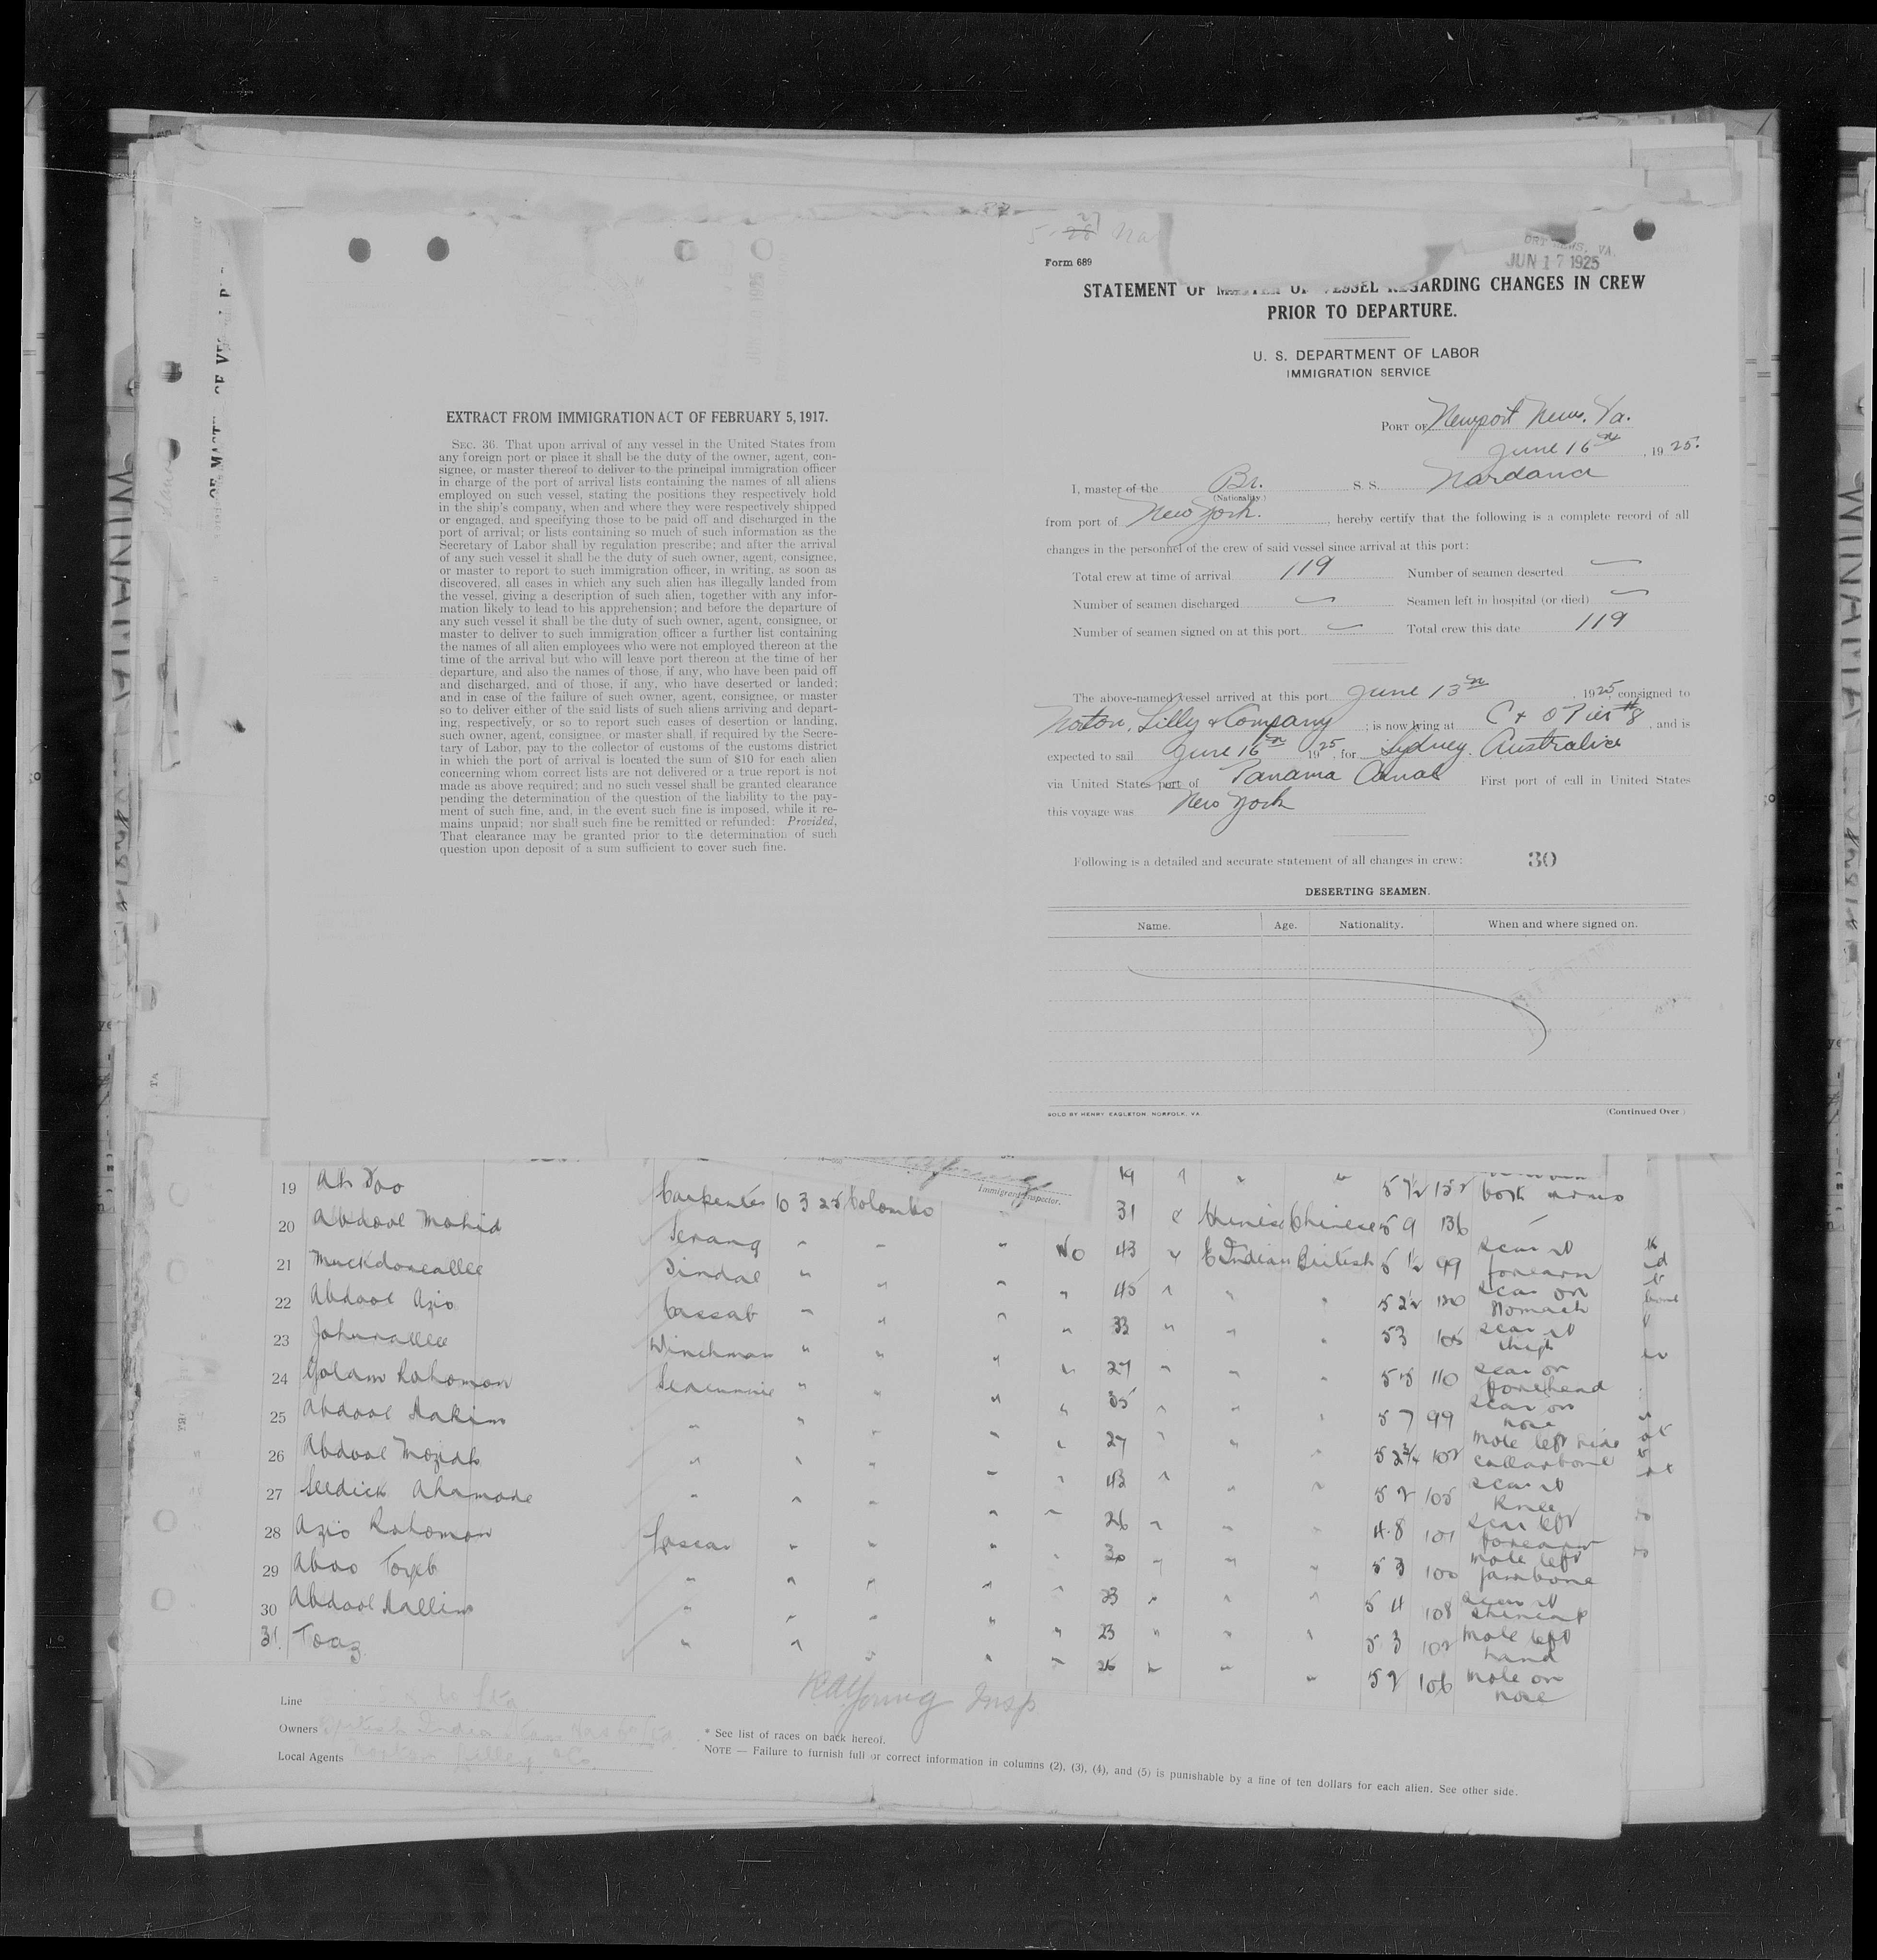 EXTRACT FROM IMMIGRATION ACT OF FEBRUARY 5, 1917.
SEC. 36. That upon arrival of any vessel in the United States from
any foreign port or place it shall be the duty of the owner, agent, con-
signee, or master thereof to deliver to the principal immigration officer
in charge of the port of arrival lists containing the names of all aliens
employed on such vessel, stating the positions they respectively hold
in the ship's company, when and where they were respectively shipped
or engaged, and specifying those to be paid off and discharged in the
port of arrival; or lists containing so much of such information as the
Secretary of Labor shall by regulation prescribe; and after the arrival
of any such vessel it shall be the duty of such owner, agent, consignee,
or master to report to such immigration officer, in writing, as soon as
discovered, all cases in which any such alien has illegally landed from
the vessel, giving a description of such alien, together with any infor-
mation likely to lead to his apprehension; and before the departure of
any such vessel it shall be the duty of such owner, agent, consignee, or
master to deliver to such immigration officer a further list containing
the names of all alien employees who were not employed thereon at the
time of the arrival but who will leave port thereon at the time of her
departure, and also the names of those, if any, who have been paid off
and discharged, and of those, if any, who have deserted or landed;
and in case of the failure of such owner, agent, consignee, or master
so to deliver either of the said lists of such aliens arriving and depart-
ing, respectively, or so to report such cases of desertion or landing,
such owner, agent, consignee, or master shall, if required by the Secre-
tary of Labor, pay to the collector of customs of the customs district
in which the port of arrival is located the sum of $10 for each alien
concerning whom correct lists are not delivered or a true report is not
made as above required; and no such vessel shall be granted clearance
pending the determination of the question of the liability to the pay-
ment of such fine, and, in the event such fine is imposed, while it re-
mains unpaid; nor shall such fine be remitted or refunded: Provided,
That clearance may be granted prior to the determination of such
question upon deposit of a sum sufficient to cover such fine.
JUN 17 1925
Form 689
STATEMENT OF MASTER OF VESSEL REGARDING CHANGES IN CREW
PRIOR TO DEPARTURE.
U. S. DEPARTMENT OF LABOR
IMMIGRATION SERVICE
PORT OF Newport News. Va.
June 16th, 1925.
I, master of the Br. S. S. Nardana
(Nationality.)
from port of New York., hereby certify that the following is a complete record of all
changes in the personnel of the crew of said vessel since arrival at this port:
Total crew at time of arrival 119 Number of seamen deserted —
Number of seamen discharged — Seamen left in hospital (or died) —
Number of seamen signed on at this port — Total crew this date 119
The above-named vessel arrived at this port June 13th, 1925 consigned to
Norton, Lilly & Company; is now lying at C & O Pier #8, and is
expected to sail June 16th 1925, for Sydney. Australia
via United States port of Panama Canal First port of call in United States
this voyage was New York
Following is a detailed and accurate statement of all changes in crew: 30
DESERTING SEAMEN.
Name. Age. Nationality. When and where signed on.
SOLD BY HENRY EAGLETON, NORFOLK, VA. (Continued Over)
Immigrant Inspector.
19 Carpenter 10 3 25 Colombo 31 Chinese Chinese 5 9 136
20 Abdool Serang No 43 E Indian British 5 1½ 99 forearm
21 Muckdoomallee Tindal 45 5 2½ 120 scar on stomach
22 Abdool Azio Cassab 33 5 3 105 thigh
23 Winchman 27 5 5 110 scar on forehead
24 Golam Rahoman 35 5 7 99 scar on nose
25 Abdool Hakim 27 5 2¾ 102 mole left side collarbone
26 Abdool 43 5 2 105 Knee
27 Seedick Ahamode 26 4.8 101 scar left forearm
28 Azio Rahoman Lascar 30 5 3 100 mole left jawbone
29 23 5 4 108
30 Abdool 23 5 3 102 mole left hand
31. Toaz 26 5 2 106 mole on nose
RA Young Insp
Line
Owners British India
Local Agents Norton Lilley & Co.
* See list of races on back hereof.
NOTE — Failure to furnish full or correct information in columns (2), (3), (4), and (5) is punishable by a fine of ten dollars for each alien. See other side.